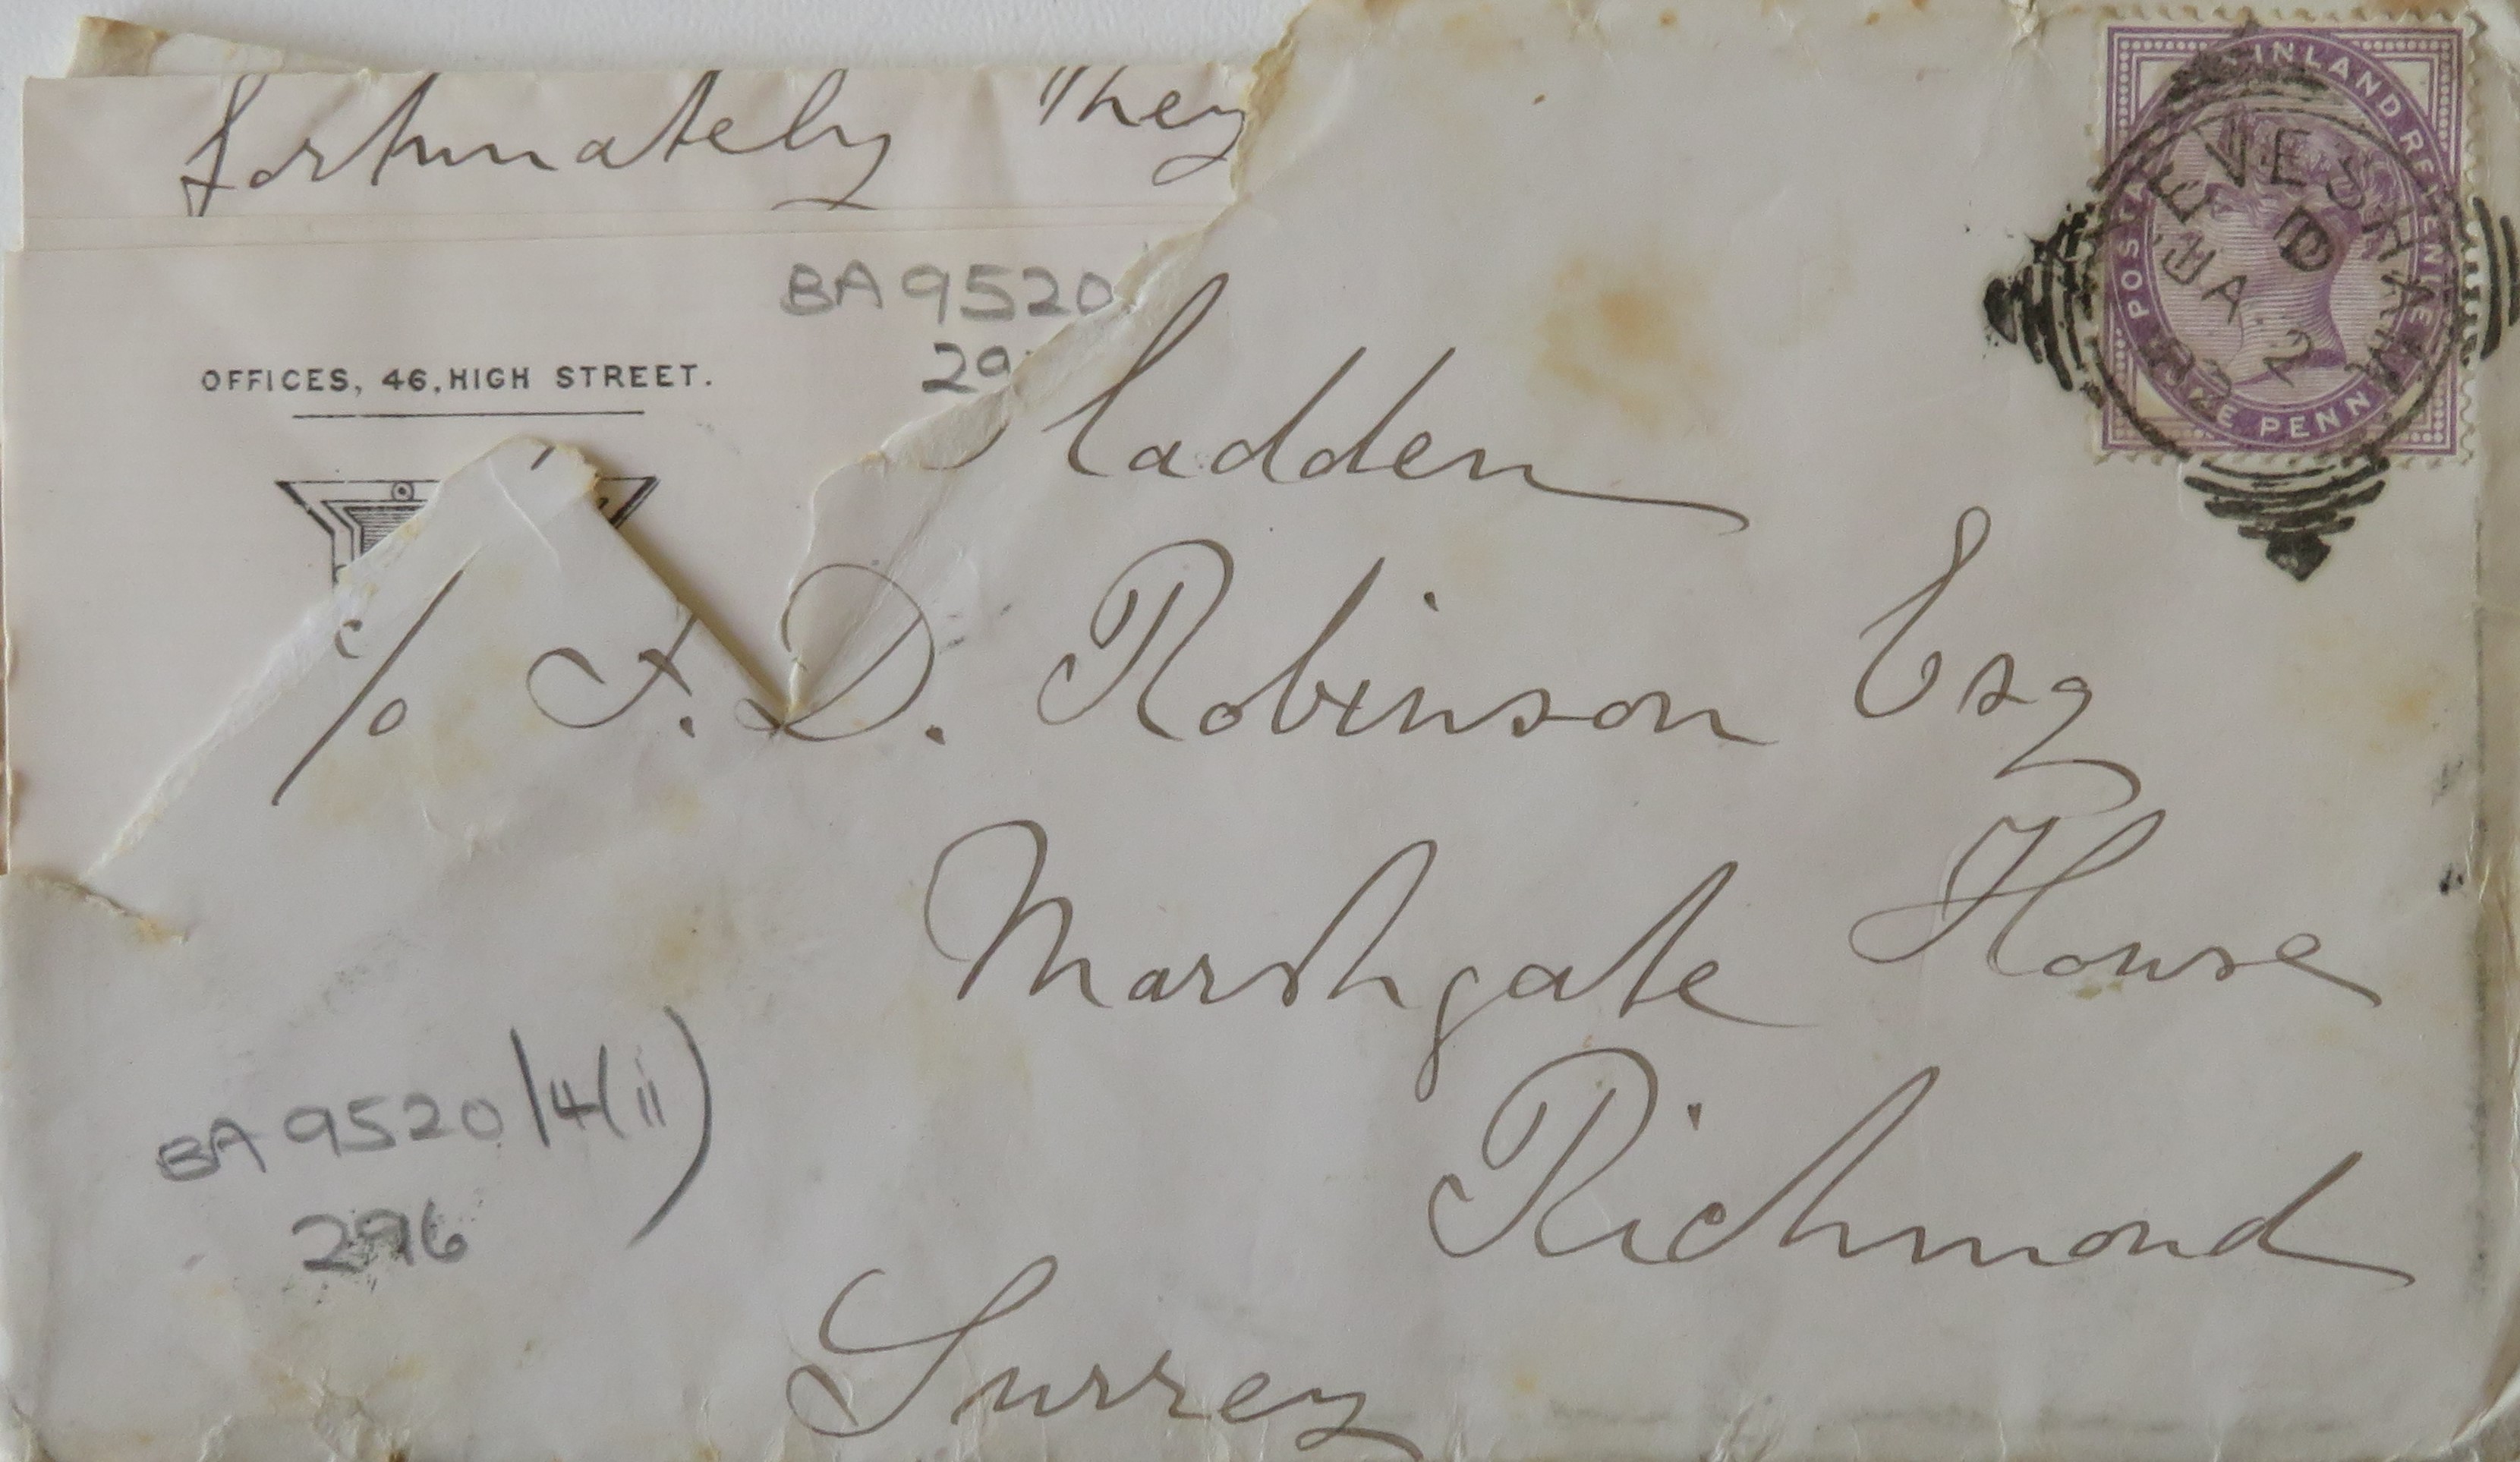 fortunately they
BA 9520
29
OFFICES, 46, HIGH STREET.
ladden
c/o F. D. Robinson Esq
Marshgate House
Richmond
Surrey
BA 9520/4(ii)
296
POSTAGE & INLAND REVENUE
ONE PENNY
EVESHAM
D
JA 2